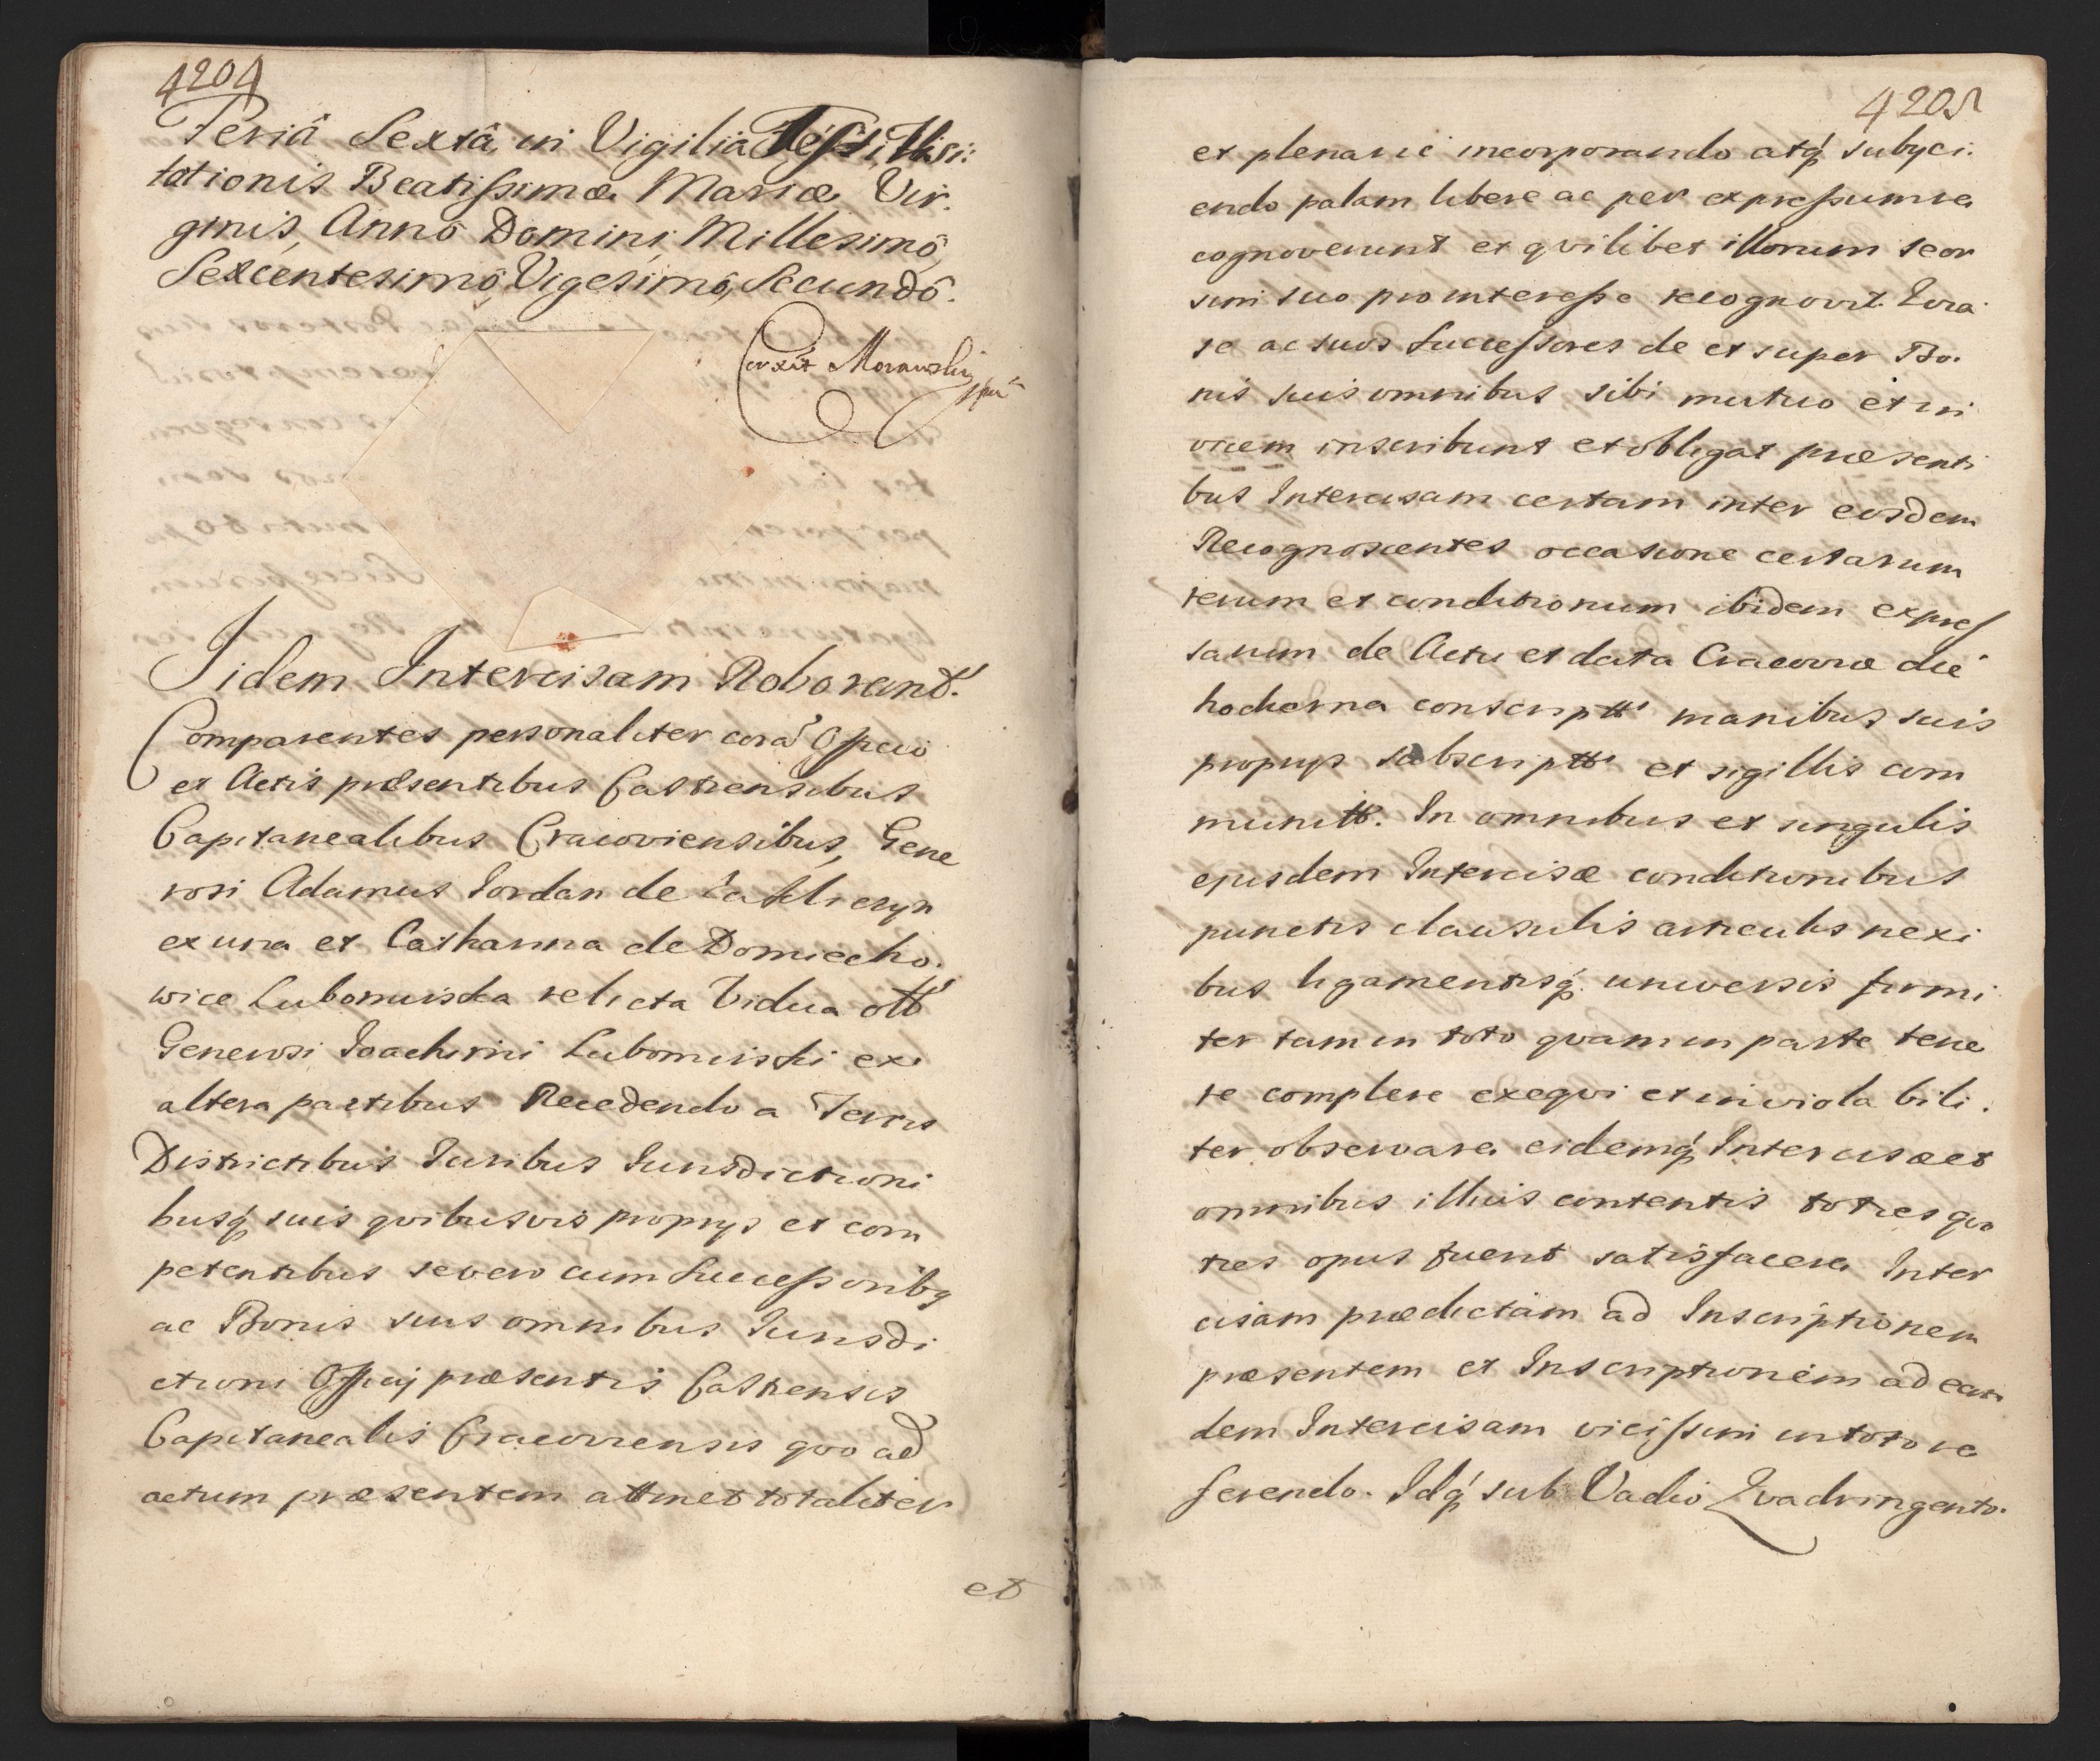 4204
Feriâ Sextâ in Vigiliâ Festi Visi:
tationis Beatissimæ Mariæ Vir.
ginis, Annô Domini Millesimô,
Sexcentesimô, Vigesimô, Secundô.
Corxit Morawski
Iidem Intercisam Roborant.
Comparentes personaliter corã Officio
et Actis præsentibus Castrensibus
Capitanealibus Cracoviensibus, Gene
rosi Adamus Iordan de Zakliczyn
ex una et Catharina de Domiecho.
wice Lubomirska relicta Vidua olt̃
Generosi Ioachimi Lubomirski ex
altera partibus Recedendo a Terris
Districtibus Iuribus Iurisdictioni
busq́ suis qvibusvis proprys et com
petentibus se vero cum Successoribq
ac Bonis suis omnibus Iurisdi
ctioni Officij præsentis Castrensis
Capitanealis Cracoviensis qvo ad
actum præsentem attinet totaliter
et
4205
et plenarie incorporando atq́ subyci.
endo palam libere ac per expressum re
cognoverunt et qvilibet illorum seor
sim suo pro interesse recognovit. Qvia
se ac suos Successores de et super Bo.
nis suis omnibus sibi mutuo et in
vicem inscribunt et obligat præsenti
bus Intercisam certam inter eosdem
Recognoscentes occasione certarum
rerum et conditionum ibidem expres
sarum de Actu et data Cracoviæ die
hodierna conscriptt manibus suis
proprys subscriptt et sigillis com
munitt. In omnibus et singulis
ejusdem Intercisæ conditionibus
punctis clausulis articulis nexi
bus ligamentisq́ universis firmi
ter tam in toto qvam in parte tene
re complere exeqvi et inviola bili.
ter observare eidemq́ Intercisæ et
omnibus illius contentis toties qvo
ties opus fuerit satisfacere Inter
cisam prædictam ad Inscriptionem
præsentem et Inscriptionem ad ean
dem Intercisam vicissim in toto re
ferendo. Idq́ sub Vadio Qvadringento.